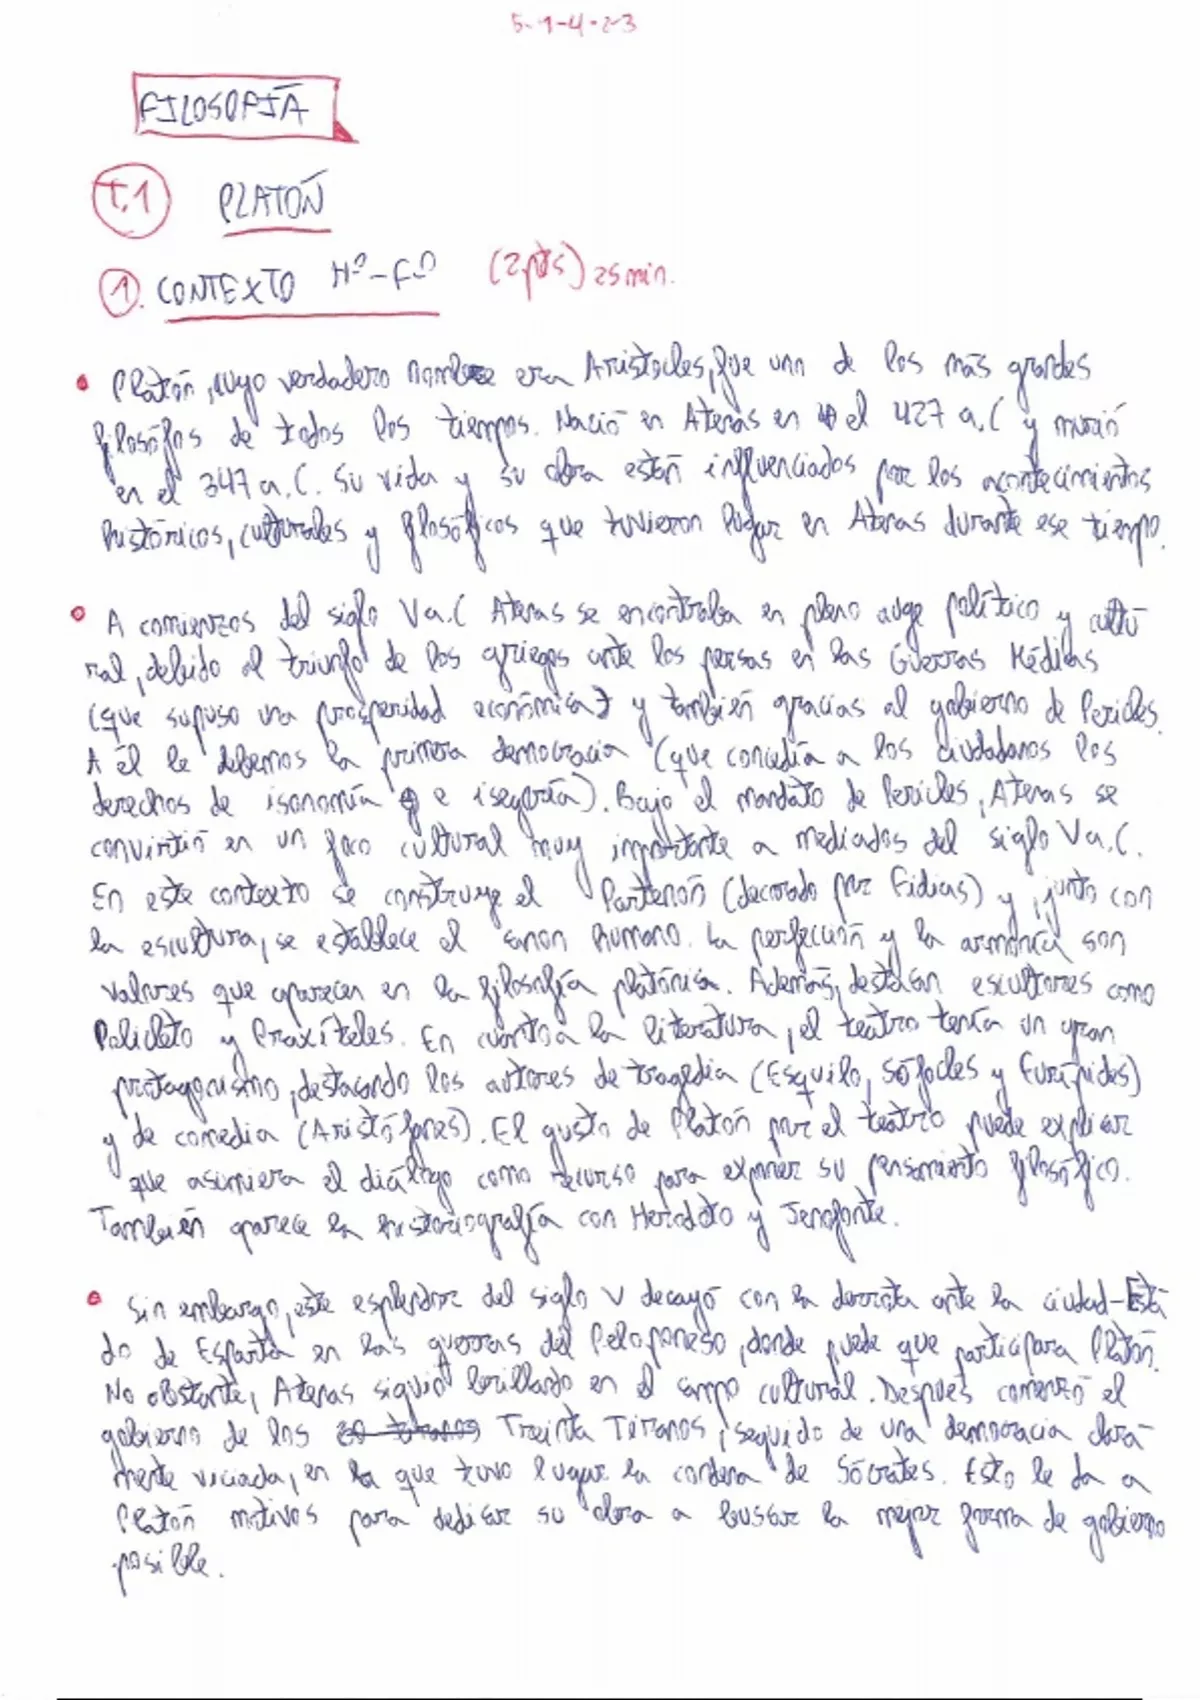 5-1-4-2-3
FILOSOFÍA
T.1 PLATÓN
1. CONTEXTO Hº-Fº (2 pts) 25 min.
• Platón, cuyo verdadero nombre era Aristocles, fue uno de los más grandes
filósofos de todos los tiempos. Nació en Atenas en el 427 a.C y murió
en el 347 a.C. Su vida y su obra están influenciados por los acontecimientos
históricos, culturales y filosóficos que tuvieron lugar en Atenas durante ese tiempo.
• A comienzos del siglo V a.C Atenas se encontraba en pleno auge político y cultu
ral, debido al triunfo de los griegos ante los persas en las Guerras Médicas
(que supuso una prosperidad económica) y también gracias al gobierno de Pericles.
A él le debemos la primera democracia (que concedía a los ciudadanos los
derechos de isonomía e isegoría). Bajo el mandato de Pericles, Atenas se
convirtió en un foco cultural muy importante a mediados del siglo V a.C.
En este contexto se construye el Partenón (decorado por Fidias) y, junto con
la escultura, se establece el canon humano. La perfección y la armonía son
valores que aparecen en la filosofía platónica. Además, destacan escultores como
Policleto y Praxíteles. En cuanto a la literatura, el teatro tenía un gran
protagonismo, destacando los autores de tragedia (Esquilo, Sófocles y Eurípides)
y de comedia (Aristófanes). El gusto de Platón por el teatro puede explicar
que asumiera el diálogo como recurso para exponer su pensamiento filosófico.
También aparece la historiografía con Heródoto y Jenofonte.
• Sin embargo, este esplendor del siglo V decayó con la derrota ante la ciudad-Esta
do de Esparta en las guerras del Peloponeso, donde puede que participara Platón.
No obstante, Atenas siguió brillando en el campo cultural. Después comenzó el
gobierno de los 30 tiranos Treinta Tiranos, seguido de una democracia clara-
mente viciada, en la que tuvo lugar la condena de Sócrates. Esto le da a
Platón motivos para dedicar su obra a buscar la mejor forma de gobierno
posible.